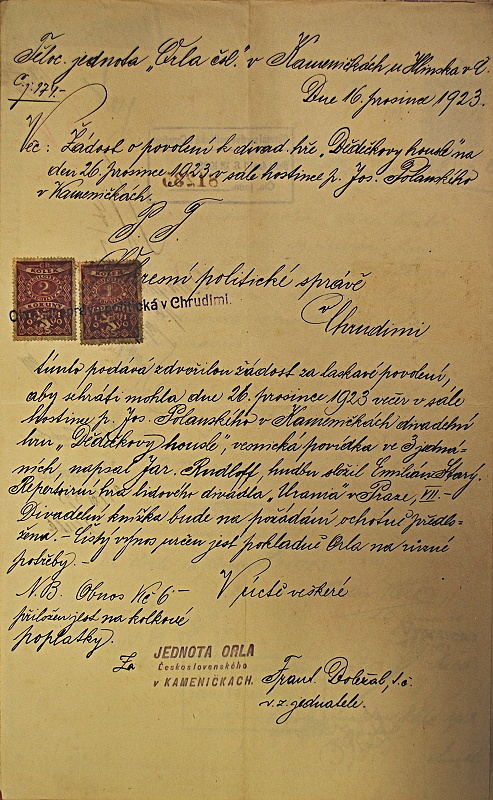 Těloc. jednota „Orla čsl." v Kameničkách u Hlinska v Č.
Č.j. 174.-
Dne 16. prosince 1923.
Věc: Žádost o povolení k divad. hře „Dědečkovy housle" na
den 26. prosince 1923 v sále hostince p. Jos. Polanského
v Kameničkách.
P. T.
Okresní politické správě
v Chrudimi
KOLEK
2
KORUNY
KOLEK
v Chrudimi.
tímto podává zdvořilou žádost za laskavé povolení,
aby sehráti mohla dne 26. prosince 1923 večer v sále
hostince p. Jos. Polanského v Kameničkách divadelní
hru „Dědečkovy housle", vesnická povídka ve 3 jedná-
ních, napsal Jar. Rudloff, hudbu složil Emilián Starý.
Repertoirní hra lidového divadla „Urania v Praze, VII.-
Divadelní knížka bude na požádání ochotně předlo-
žena.- Čistý výnos určen jest pokladně Orla na různé
potřeby.-
N.B. Obnos Kč 6-
přiložen jest na kolkové
poplatky.
V úctě veškeré
Za
JEDNOTA ORLA
Československého
v KAMENIČKÁCH.
Frant. Dobřal, t.č.
v.z. jednatele.